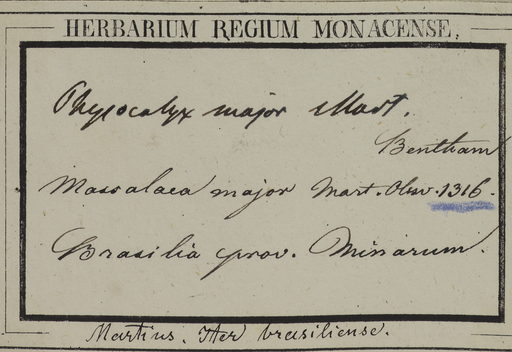 HERBARIUM REGIUM MONACENSE.
Physocalyx major Mart.
Bentham
Massalaea major Mart. Obsv. 1316.
Brasilia prov. Minarum.
Martius. Iter brasiliense.